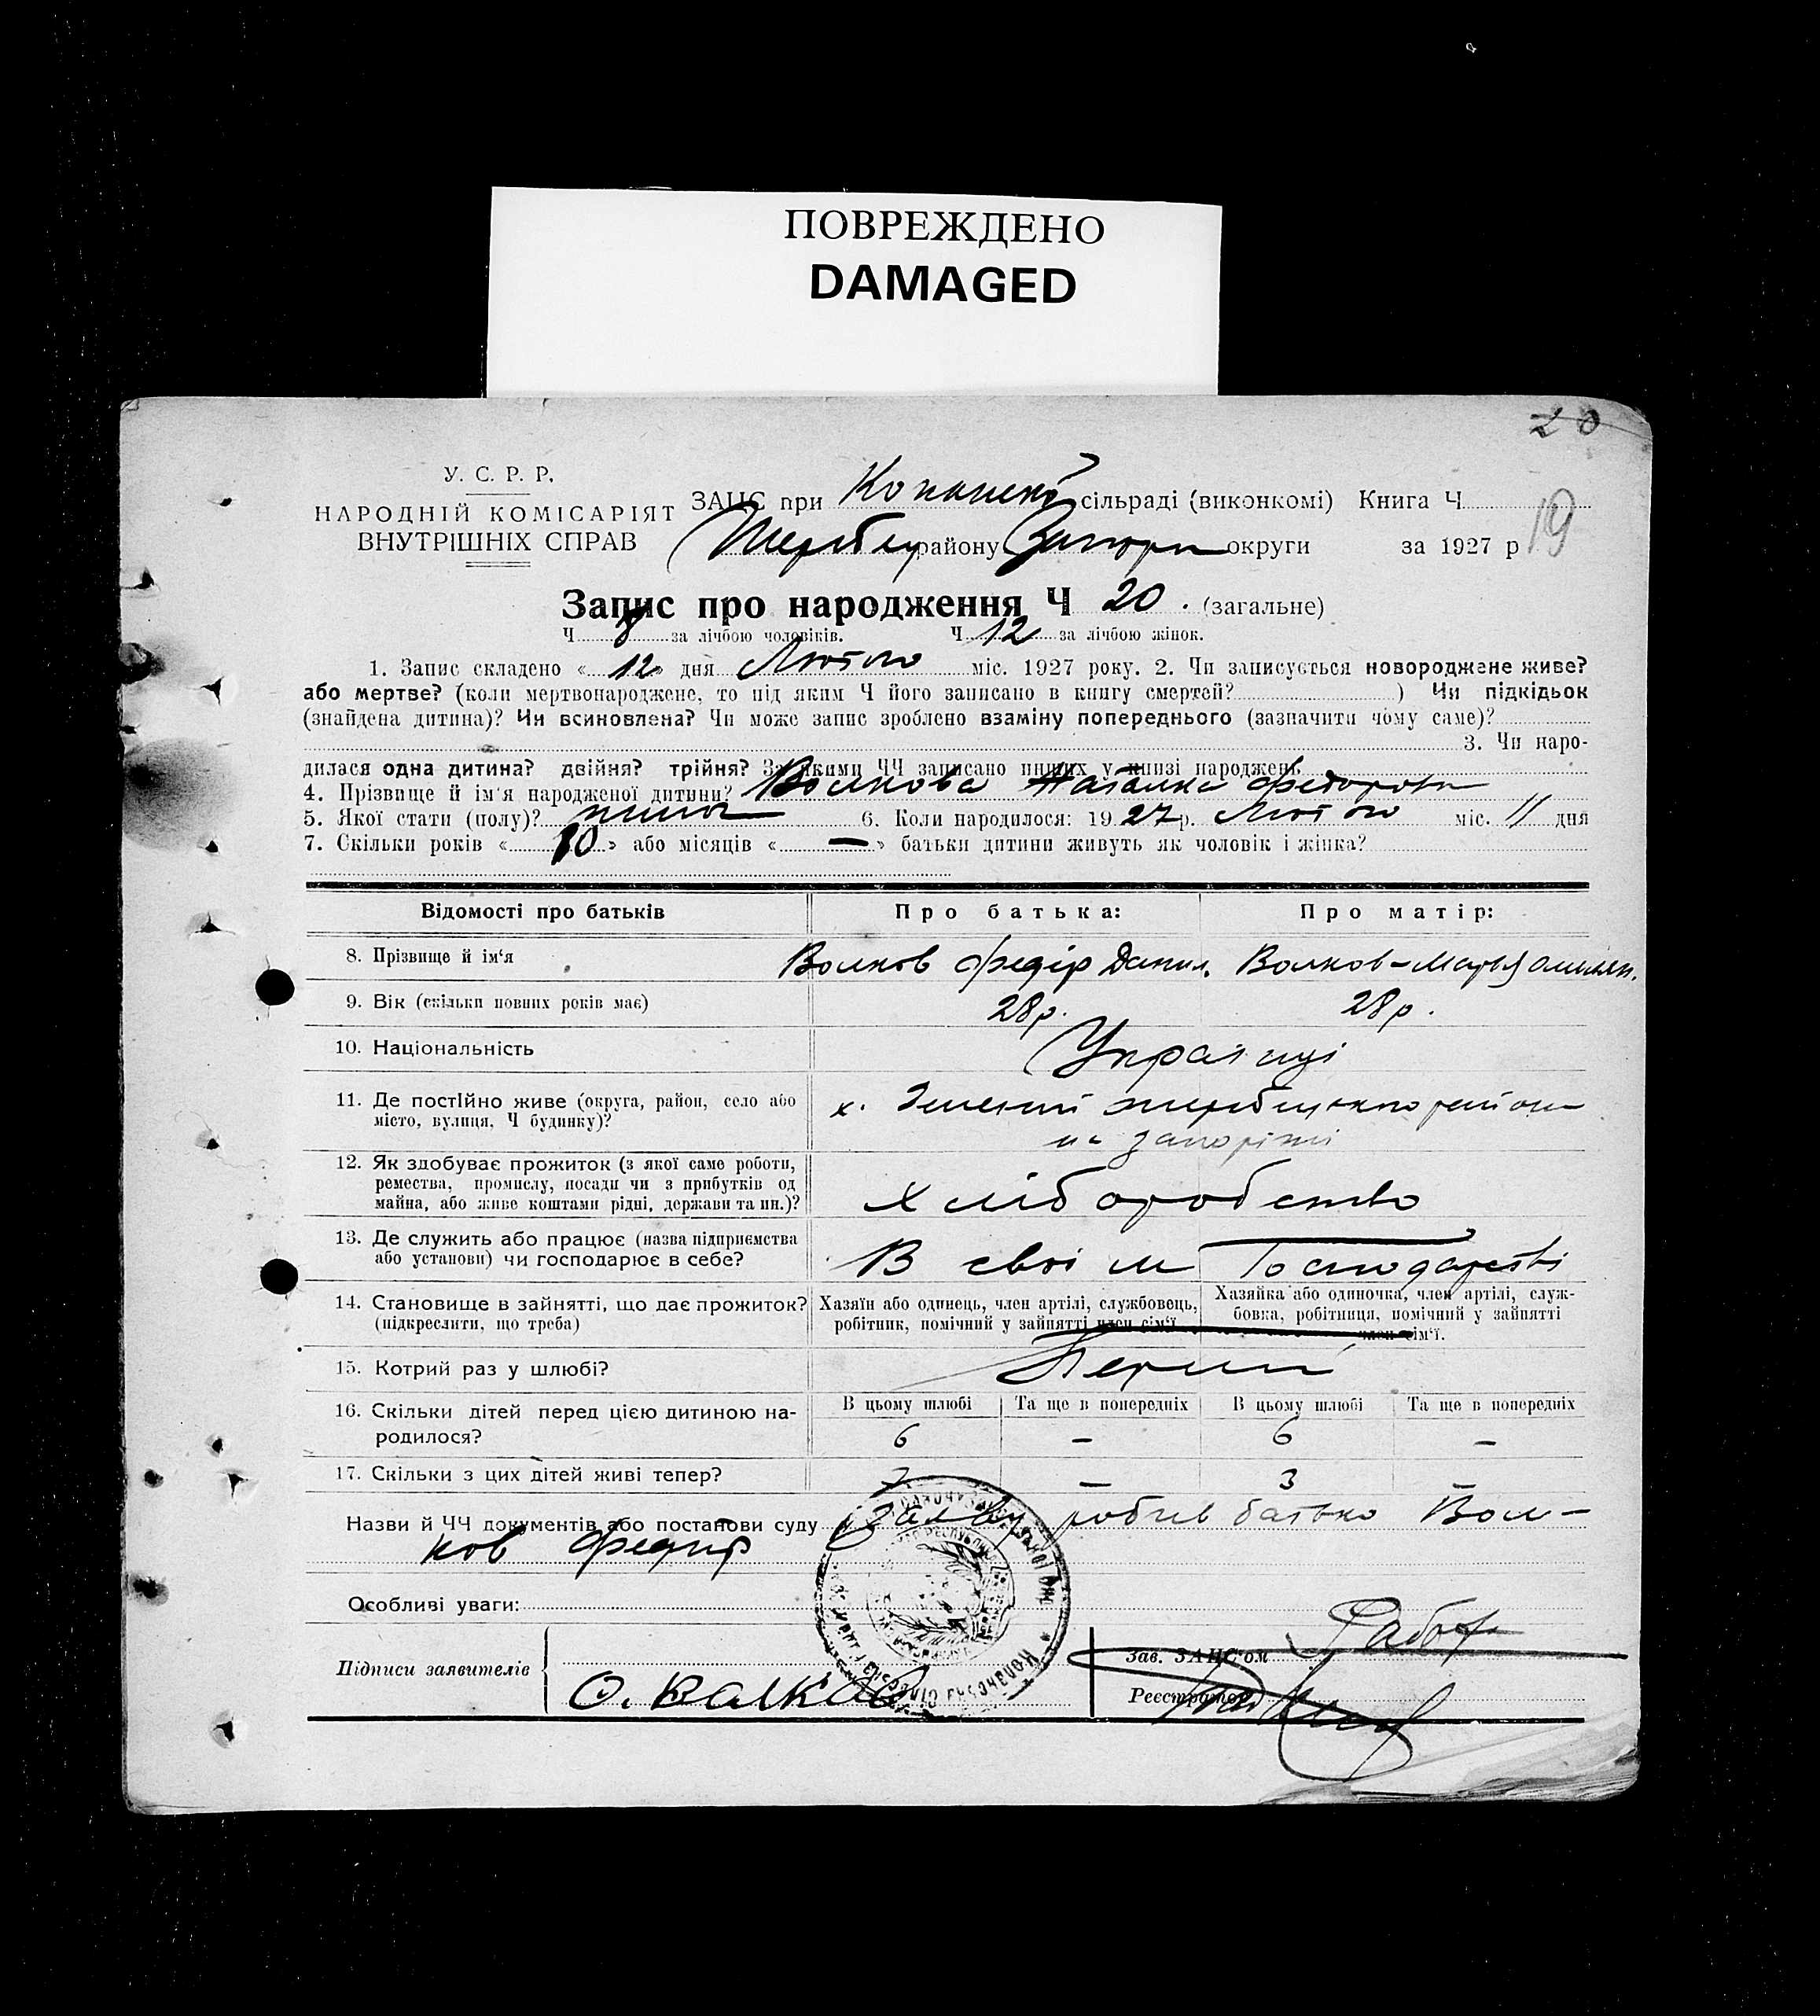 ПОВРЕЖДЕНО
DAMAGED
20
У. С. Р. Р.
НАРОДНІЙ КОМІСАРІЯТ
ВНУТРІШНІХ СПРАВ
ЗАЦС при сільраді (виконкомі) Книга Ч
19
району Запор округи за 1927 р
Запис про народження Ч 20. (загальне)
Ч 8 за лічбою чоловіків. Ч 12 за лічбою жінок.
1. Запис складено « 12 » дня Лютого міс. 1927 року. 2. Чи записується новороджене живе?
або мертве? (коли мертвонароджене, то під яким Ч його записано в книгу смертей? ) Чи підкідьок
(знайдена дитина)? Чи всиновлена? Чи може запис зроблено взаміну попереднього (зазначити чому саме)?
3. Чи наро-
дилася одна дитина? двійня? трійня? За якими ЧЧ записано инших у книзі народжень
4. Прізвище й ім'я народженої дитини? Волкова Наталка Федоровн
5. Якої стати (полу)? 6. Коли народилося: 1927 р. Лютого міс. 11 дня
7. Скільки років « 10 » або місяців « — » батьки дитини живуть як чоловік і жінка?
Відомості про батьків Про батька: Про матір:
8. Прізвище й ім'я Волков Федір Данил. Волков-Марья Омелян.
9. Вік (скільки повних років має) 28 р. 28 р.
10. Національність Українці
11. Де постійно живе (округа, район, село або
місто, вулиця, Ч будинку)?
х. Зелений району
на запоріжжі
12. Як здобуває прожиток (з якої саме роботи,
ремества, промислу, посади чи з прибутків од
майна, або живе коштами рідні, держави та ин.)?
Хліборобство
13. Де служить або працює (назва підприємства
або установи) чи господарює в себе?
В своїм Господарстві
14. Становище в зайнятті, що дає прожиток?
(підкреслити, що треба)
Хазяїн або одинець, член артілі, службовець,
робітник, помічний у зайнятті член сім'ї
Хазяйка або одиночка, член артілі, служ-
бовка, робітниця, помічний у зайнятті
член сім'ї.
15. Котрий раз у шлюбі? Перший
16. Скільки дітей перед цією дитиною на-
родилося?
В цьому шлюбі Та ще в попередніх В цьому шлюбі Та ще в попередніх
6 — 6 —
17. Скільки з цих дітей живі тепер? 3 — 3 —
Назви й ЧЧ документів або постанови суду Заяву робив батько Вол-
ков Федір
Особливі уваги:
Підписи заявителів О. Валков
Зав. ЗАЦС'ом
Реєстратор